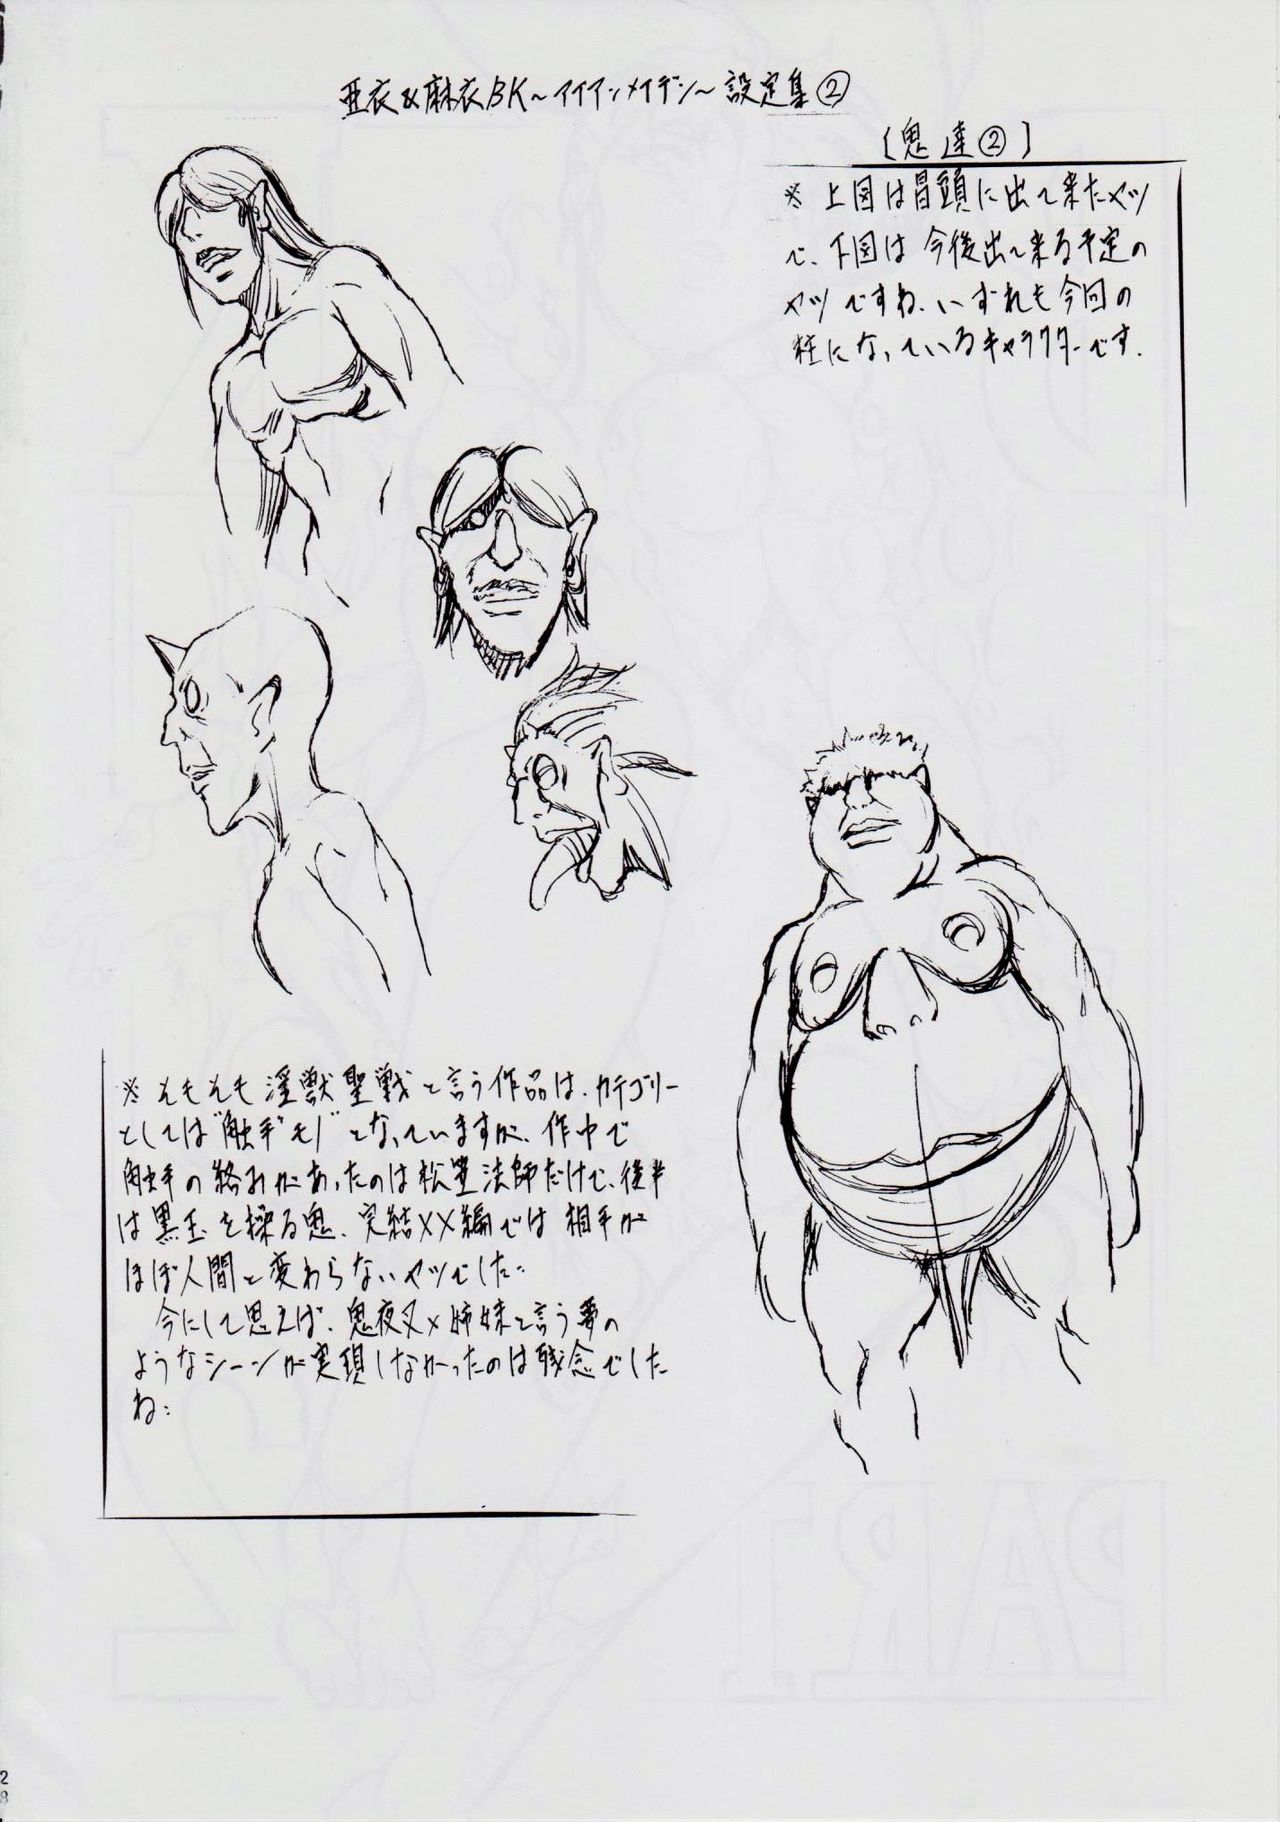 亜衣&麻衣BK～アイアンメイデン～設定集②
〔鬼達②〕
※上図は冒頭に出て来たヤツ
で、下図は今後出て来る予定の
ヤツですね、いずれも今回の
柱になっているキャラクターです.
※そもそも淫獣聖戦と言う作品は、カテゴリー
としては"触手"モノとなっていますが、作中で
触手の絡みがあったのは松笠法師だけで、後半
は黒玉を操る鬼、実結××編では相手が
ほぼ人間と変わらないヤツでした…
今にして思えば、鬼夜叉×姉妹と言う夢の
ようなシーンが実現しなかったのは残念でした
ね…
PART
28